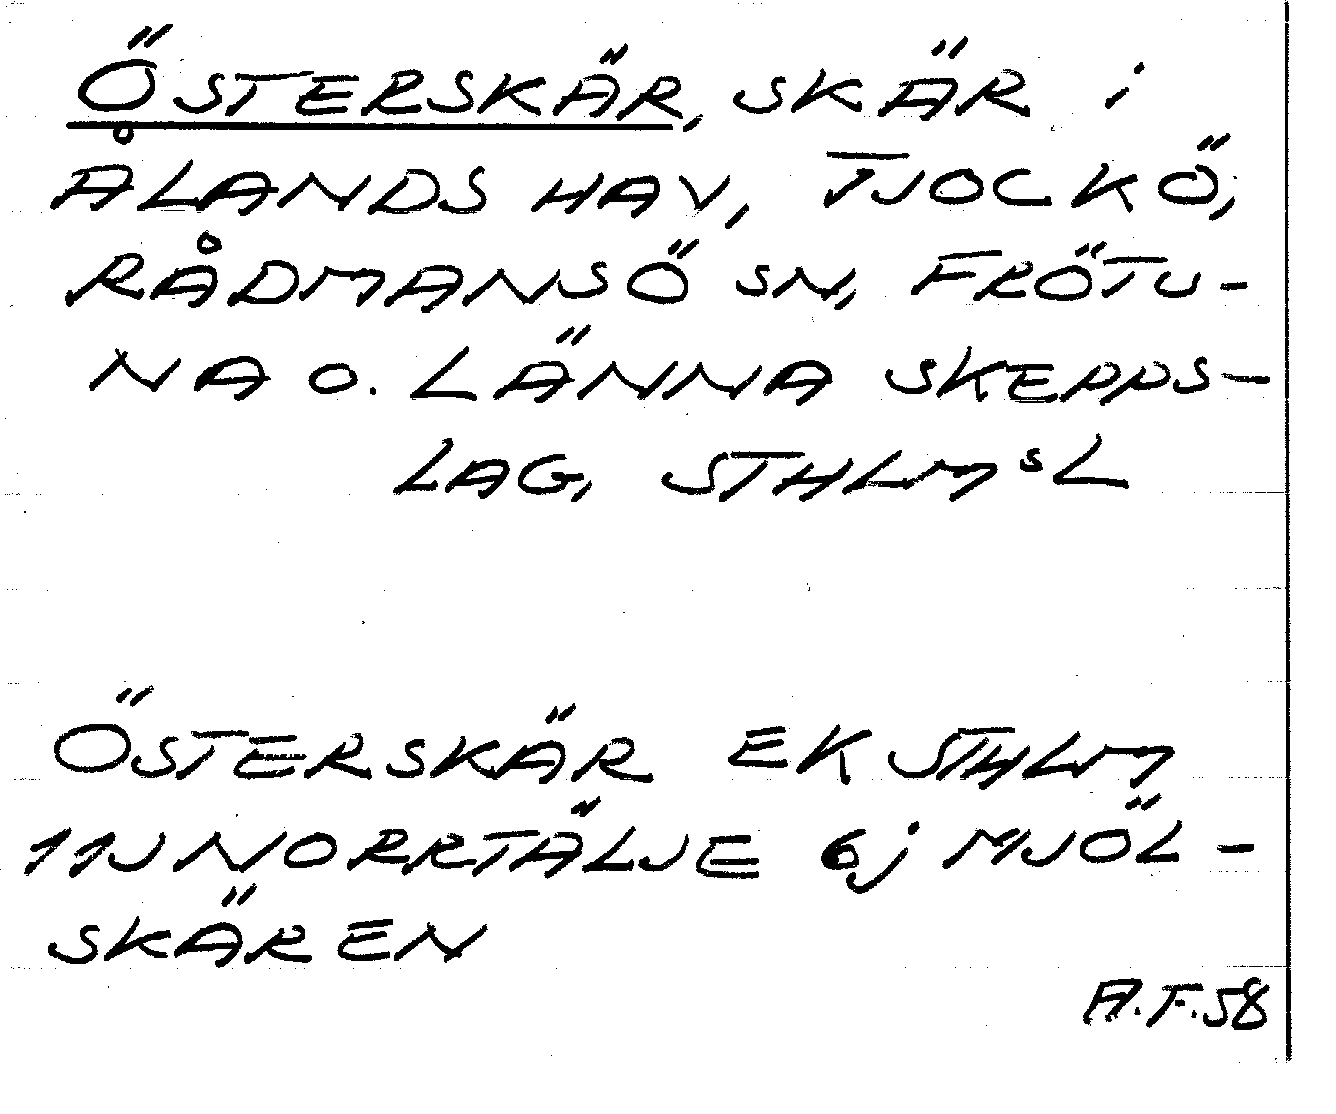 ÖSTERSKÄR, SKÄR i
ÅLANDS HAV, TJOCKÖ,
RÅDMANSÖ SN, FRÖTU-
NA O. LÄNNA SKEPPS-
LAG, STHLMˢ L
ÖSTERSKÄR EK STHLM
11J NORRTÄLJE 6j MJÖL-
SKÄREN
A.F.58